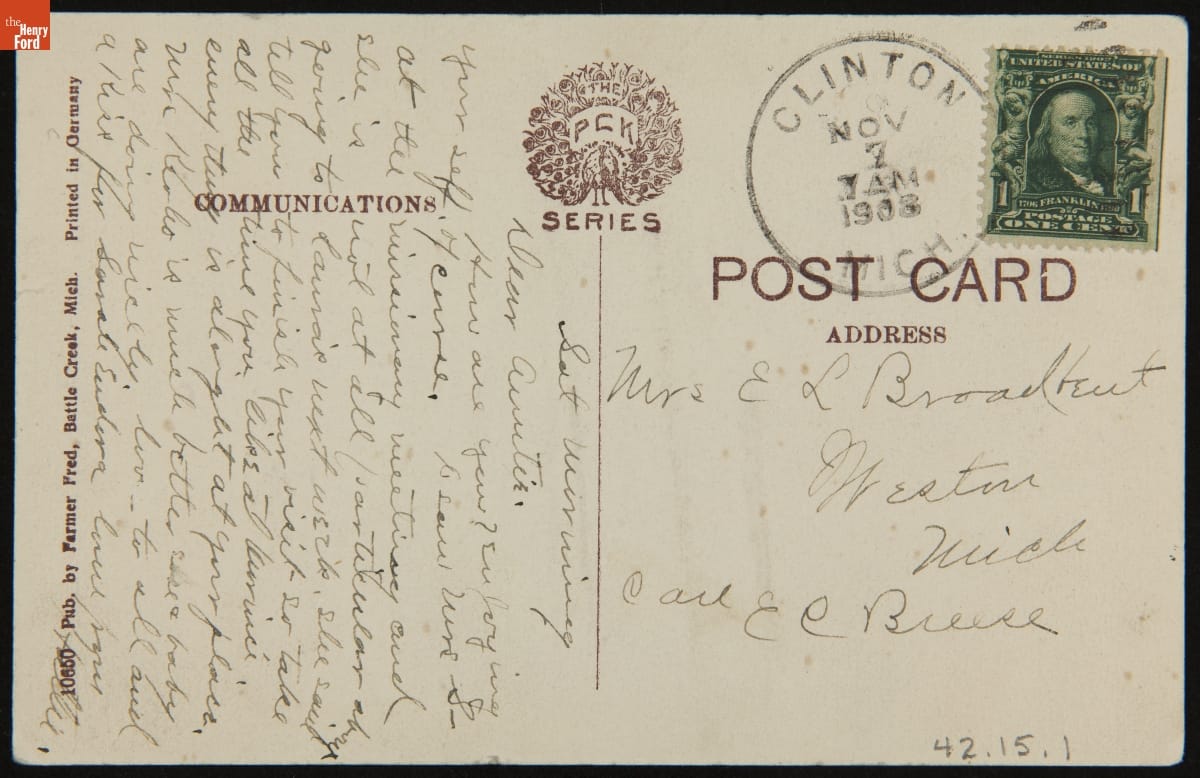 the
Henry
Ford
COMMUNICATIONS
THE
PCK
SERIES
CLINTON
NOV
7
7 AM
1908
MICH.
SERIES 1902
UNITED STATES OF
AMERICA
1
1706 FRANKLIN 1790
1
POSTAGE
ONE CENT
POST CARD
ADDRESS
Mrs E L Broadbent
Weston
Mich
Care E C Breese
Sat Morning
Dear Auntie.
How are you? Enjoying
your self, of course.
I saw Mrs S-
at the missionary meeting and
she is not at all
going to next week. She said
tell you to finish your visit so take
all the time you like at home
every thing is alright at your place.
Mrs is much better baby
are doing nicely too - to all and
a kiss for love from
10650 Pub. by Farmer Fred, Battle Creek, Mich. Printed in Germany
42.15.1